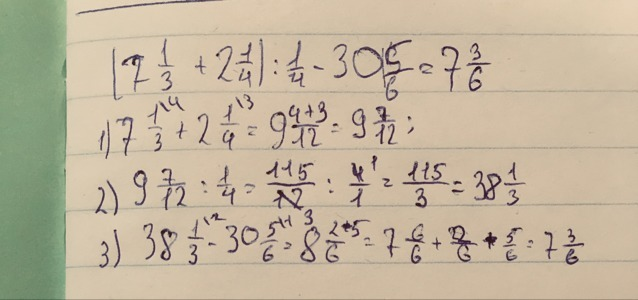 (7 1/3 + 2 1/4) : 1/4 - 30 5/6 = 7 3/6
1) 7 1/3 \4 + 2 1/4 \3 = 9 4+3/12 = 9 7/12;
2) 9 7/12 : 1/4 = 115/12 : 4/1 = 115/3 = 38 1/3
3) 38 1/3 \2 - 30 5/6 \1 = 8 2-5/6 = 7 6/6 + 2/6 - 5/6 = 7 3/6